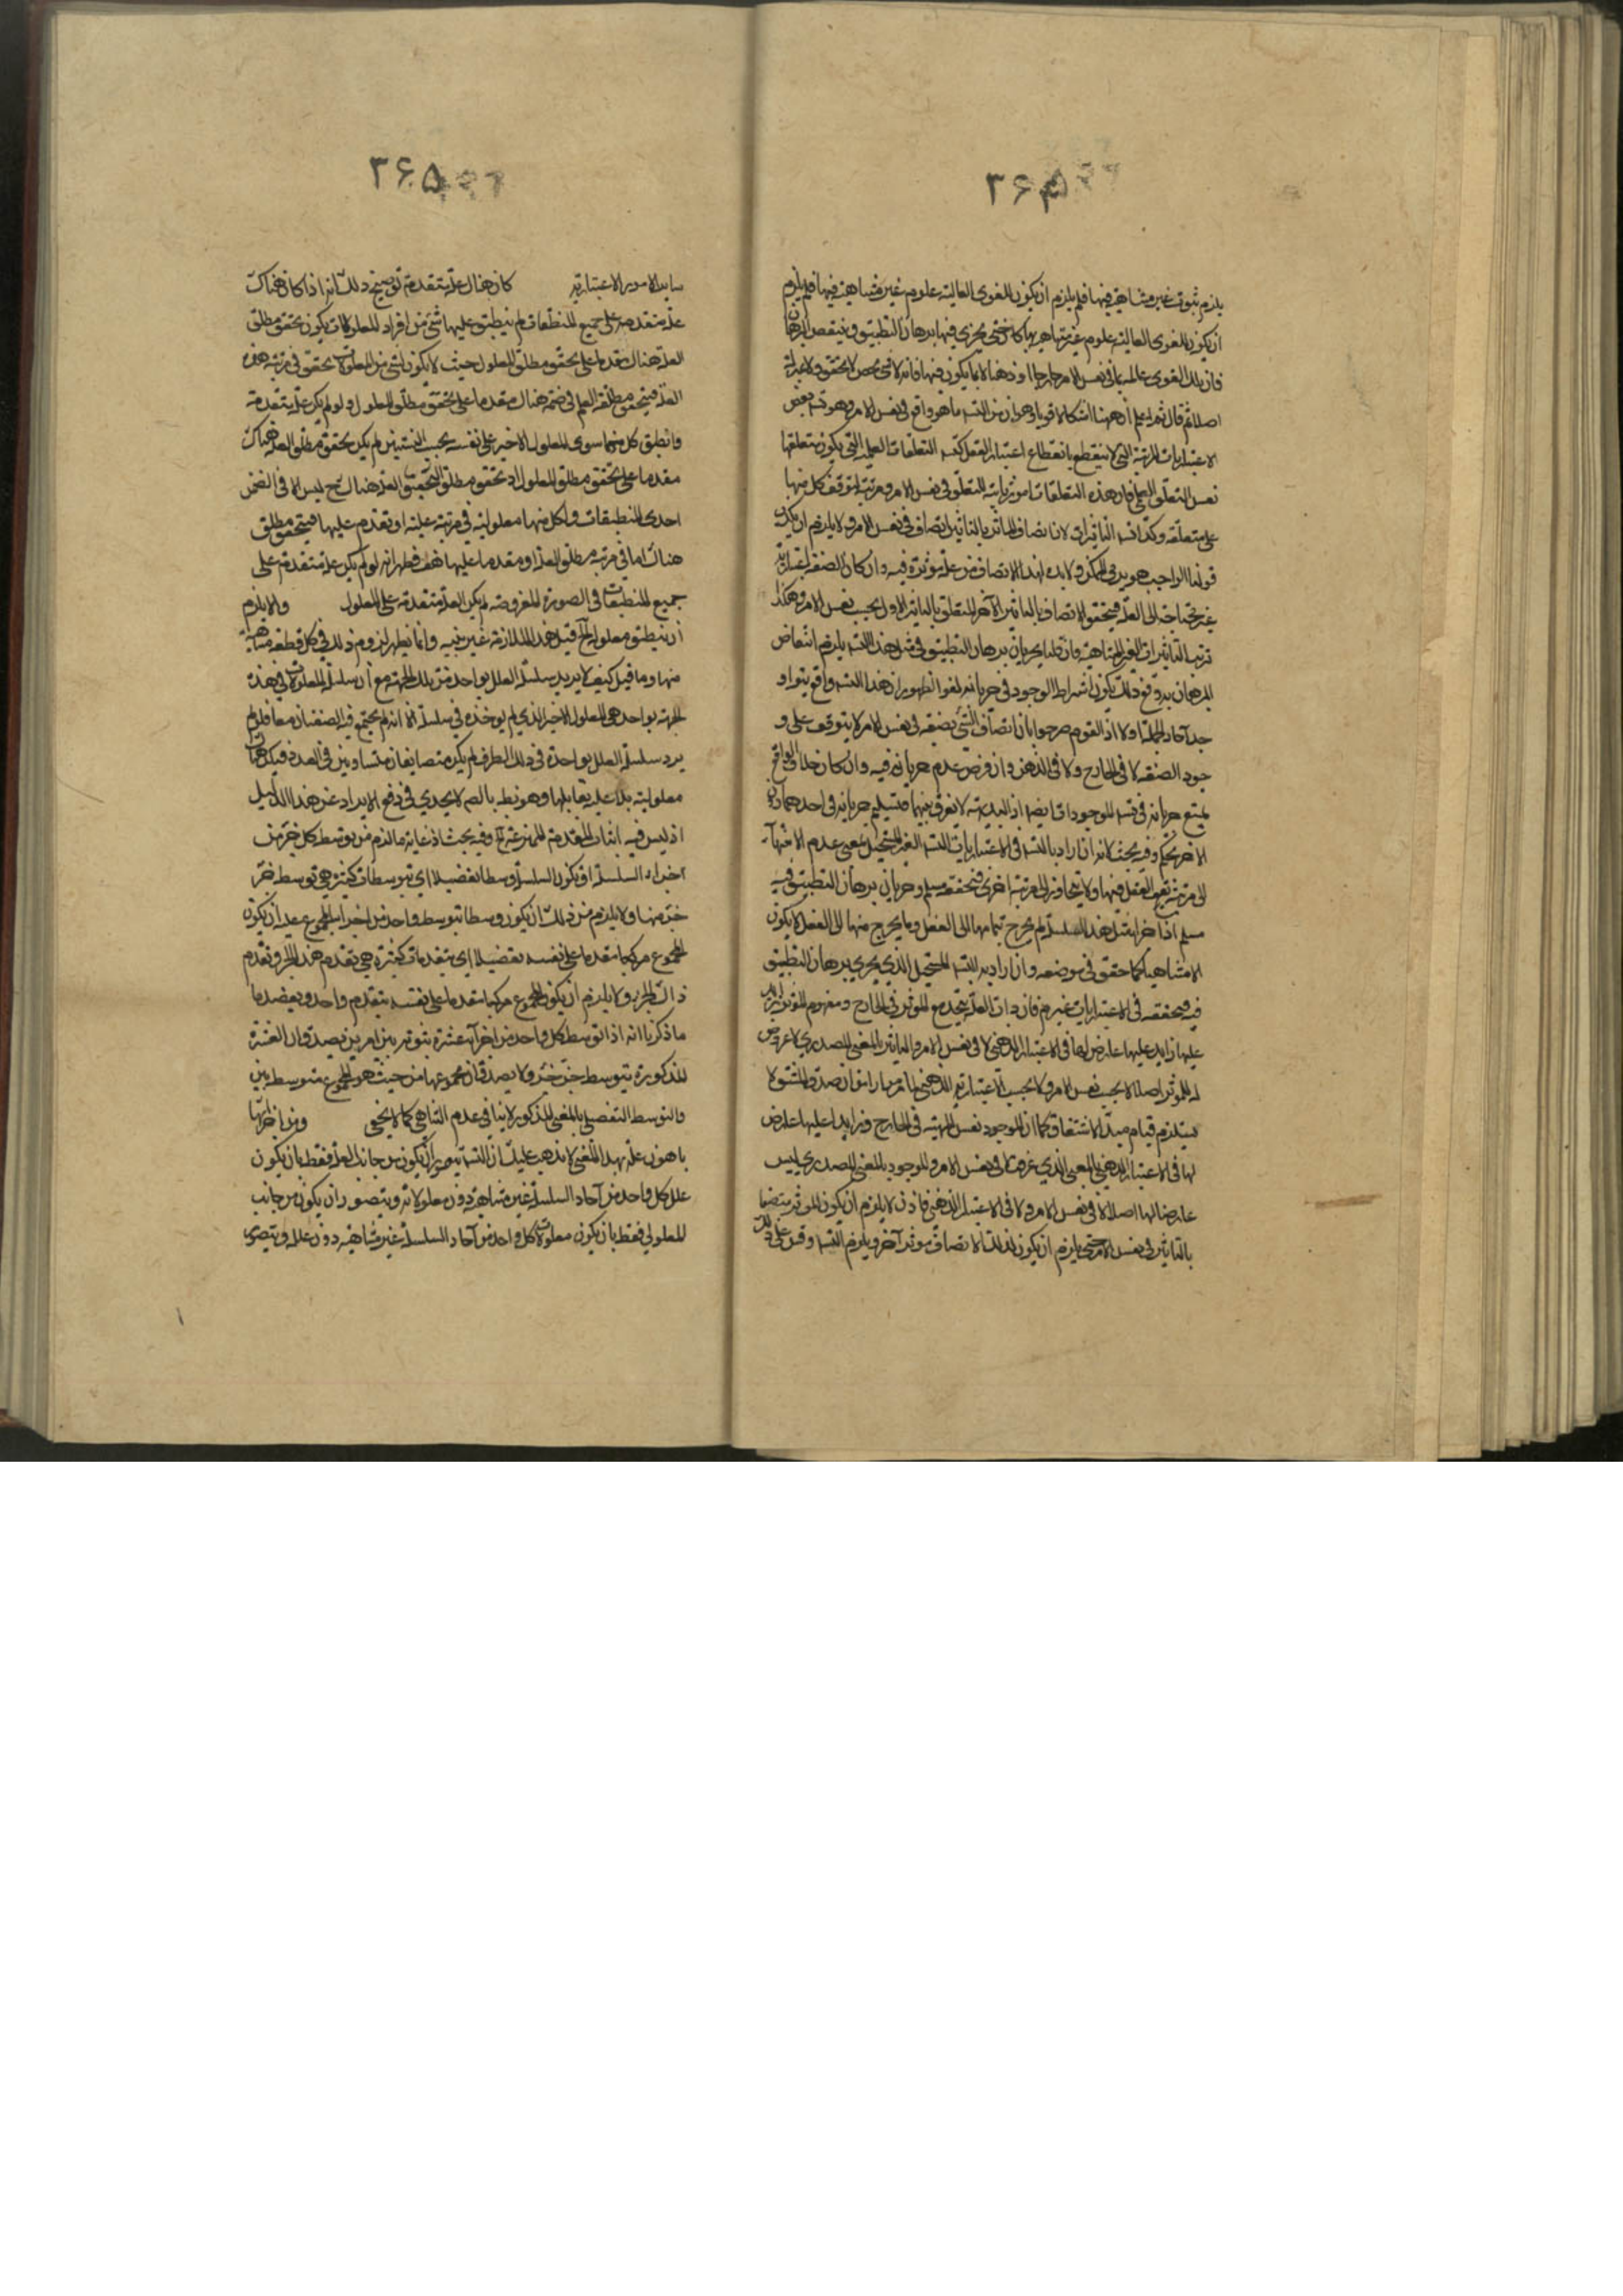 ۳۶۴
يلزم ثبوت غير متناهية فيها فلم يلزم ان يكون للقوى العالية علوم غير متناهية فيها فلم يلزم
ان يكون للقوى العالية علوم غير متناهية بها كا حتى يجرى فيها برهان التطبيق وينتقض البرهان
فان تلك القوى عالمة بما فى نفس الامر خارجا او ذهنا لا بما يكون فيها فانه لا شئ محض لا تحقق ولا
اصلا ثم قال ثم اعلم ان ههنا اشكالا قويا وهو ان من التسه ما هو واقع فى نفس الامر وهو تسه بعض
الاعتباريات المرتبة التى لا ينقطع بانقطاع اعتبار العقل كتسه التعلقات العلمية التى يكون متعلقها
نفس التعلق العلمى فان هذه التعلقات امور ثابتة للتعلق فى نفس الامر ومرتبة لتوقف كل منها
على متعلقه وكذا تسه التأثيرات لان اتصاف المؤثر بالتأثير اتصاف فى نفس الامر ولا يلزم ان يكون
قولنا الواجب هو يدبر الممكن ولا بد لهذا الاتصاف من علة مؤثرة فيه وان كان الصفة اعتبارية
غير محتاجة الى العلة فيتحقق الاتصاف بالتأثير الآخر المتعلق بالتأثير الاول بحسب نفس الامر وهكذا
ترتب التأثيرات الغير المتناهية وان قلنا بجريان برهان التطبيق فى مثل هذا التسه يلزم انتقاض
البرهان بدون ذلك يكون اشتراط الوجود فى جريانه لغوا لظهور ان هذا التسه واقع
آحاد الجملة اولا اذ القوم صرحوا بان اتصاف الشئ بصفة فى نفس الامر لا يتوقف على و
جود الصفة لا فى الخارج ولا فى الذهن وان فرض عدم جريانه فيه وان كان خلاف الواقع
يمتنع جريانه فى تسه الموجودات ايضا اذ البديهة لا تفرق بينهما فتسليم جريانه فى احدهما دون
الآخر تحكم وفيه بحث لانه ان اراد بالتسه فى الاعتباريات التسه الغير المستحيل بمعنى عدم الانتهاء
الى مرتبة يقف العقل فيها ولا يتجاوز الى مرتبة اخرى فتحققه مسلم وجريان برهان التطبيق فيه
مسلم اذ اجزاء مثل هذه السلسلة لم يخرج تمامها الى الفعل وما يخرج منها الى الفعل لا يكون
الا متناهيا كما حقق فى موضعه وان اراد به التسه المستحيل الذى يجرى برهان التطبيق
فيه فتحققه فى الاعتباريات غير م فان ذات العلة يتحد مع المؤثر فى الخارج ومفهوم المؤثر زايد
عليها زايد عليها عارض لها فى الاعتبار الذهنى لا فى نفس الامر والتأثير بالمعنى المصدرى لا عروض
له للمؤثر اصلا لا بحسب نفس الامر ولا بحسب الاعتبار الذهنى لما مر مرارا من ان صدق المشتق لا
يستلزم قيام مبدأ الاشتقاق كما ان الموجود نفس المهية فى الخارج وزايدا عليها عارض
لها فى الاعتبار الذهنى بالمعنى الذى عرفت لا فى نفس الامر والوجود بالمعنى المصدرى ليس
عارضا لها اصلا لا فى نفس الامر ولا فى الاعتبار الذهنى فاذن لا يلزم ان يكون المؤثر متصفا
بالتأثير فى نفس الامر حتى يلزم ان يكون لذلك الاتصاف مؤثر آخر ويلزم التسه وقس على ذلك
۳۶۵
ساير الامور الاعتبارية كان هناك علة متقدمة توضيح ذلك انه اذا كان هناك
علة متقدمة على جميع المنطبقات لم ينطبق عليها شئ من افراد المعلولات يكون تحقق مطلق
العلة هناك مقدما على تحقق مطلق المعلول حيث لا يكون لشئ من المعلولات تحقق فى مرتبة هذه
العلة فيتحقق مطلق العلة فى ضمنه هناك مقدما على تحقق مطلق المعلول ولو لم يكن علة متقدمة
وانطبق كل منهما سوى المعلول الاخير على نفسه بحسب النسبتين لم يكن تحقق مطلق العلة هناك
مقدما على تحقق مطلق المعلول اذ تحقق مطلق العلة هناك ح ليس الا فى الضمن
احدى المنطبقات ولكل منها معلولية فى مرتبة علية او تقدم عليها فيتحقق مطلق
هناك اما فى مرتبة مطلق العلة او مقدما عليها هف فظهر انه لو لم يكن علة متقدمة على
جميع المنطبقات فى الصورة المفروضة لم يكن العلة متقدمة على المعلول والا يلزم
ان ينطبق معلول الخ قيل هذه الملازمة غير بينة وانما يظهر لزوم ذلك فى كل قطعة متناهية
منها وما قيل كيف لا يزيد سلسلة العلل بواحد من تلك الجهة مع ان سلسلة المعلولات فى هذه
الجهة بواحد هى المعلول الاخير الذى لم يوخذ فى سلسلة الا انه لم يجتمع فيه الصفتان معا فلو لم
يزد سلسلة العلل بواحدة فى ذلك الطرف لم يكن متضايفان متساويين فى العدد فيكون هناك
معلولية بلا علية يقابلها وهو بط بالضم لا يجدى فى دفع الايراد عن هذا الدليل
اذ ليس فيه اثبات المقدمة الممنوعة الخ وفيه بحث اذ غاية ما لزم من توسط كل جزء من
اجزاء السلسلة ان يكون السلسلة وسطا تفصيلا اى بتوسطات كثيرة هى توسط جزء
جزء منها ولا يلزم من ذلك ان يكون وسطا بتوسط واحد من اجزاء المجموع بعد ان يكون
المجموع مركبا متقدما على نفسه تفصيلا اى بتقدمات كثيرة هى تقدم هذا الجزء وتقدم
ذاك الجزء ولا يلزم ان يكون المجموع مركبا متقدما على نفسه بتقدم واحد ويعضد ما
ما ذكرنا انه اذا توسط كل واحد من اجزاء عشرة بين امرين يصدق ان العشرة
المذكورة يتوسط جزء جزء ولا يصدق ان مجموعها من حيث هو المجموع متوسط بين
والتوسط التفصيلى بالمعنى المذكور لا ينافى عدم التناهى كما لا يخفى
ما هو علة بهذا المعنى لا يذهب عليك ان التسه يتصور ان يكون من جانب العلة فقط بان يكون
علل كل واحد من آحاد السلسلة غير متناهية دون معلولاته ويتصور ان يكون من جانب
المعلول فقط بان يكون معلولات كل واحد من آحاد السلسلة غير متناهية دون علله ويتصور